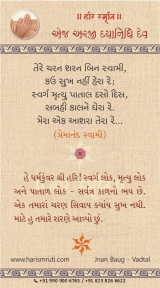 ॥ હરિ સ્મૃતિ ॥
એજ અરજી દયાનિધિ દેવ
તેરે ચરન શરન બિન સ્વામી,
કઉ સુખ નહીં હેરા રે;
સ્વર્ગ મૃત્યુ પાતાલ દસો દિસ,
સબહી કાલને ઘેરા રે.
પ્રેરા એક આશરા તેરા રે...
(પ્રેમાનંદ સ્વામી)
હે ધર્મકુંવર શ્રી હરિ! સ્વર્ગ લોક, મૃત્યુ લોક
અને પાતાળ લોક - સર્વત્ર કાળનો ભય છે.
એક તમારાં ચરણ સિવાય ક્યાંય સુખ નથી.
માટે હું તમારે શરણે આવ્યો છું.
www.harismruti.com Jnan Baug - Vadtal
+91 990 900 6765 / +91 823 826 6622